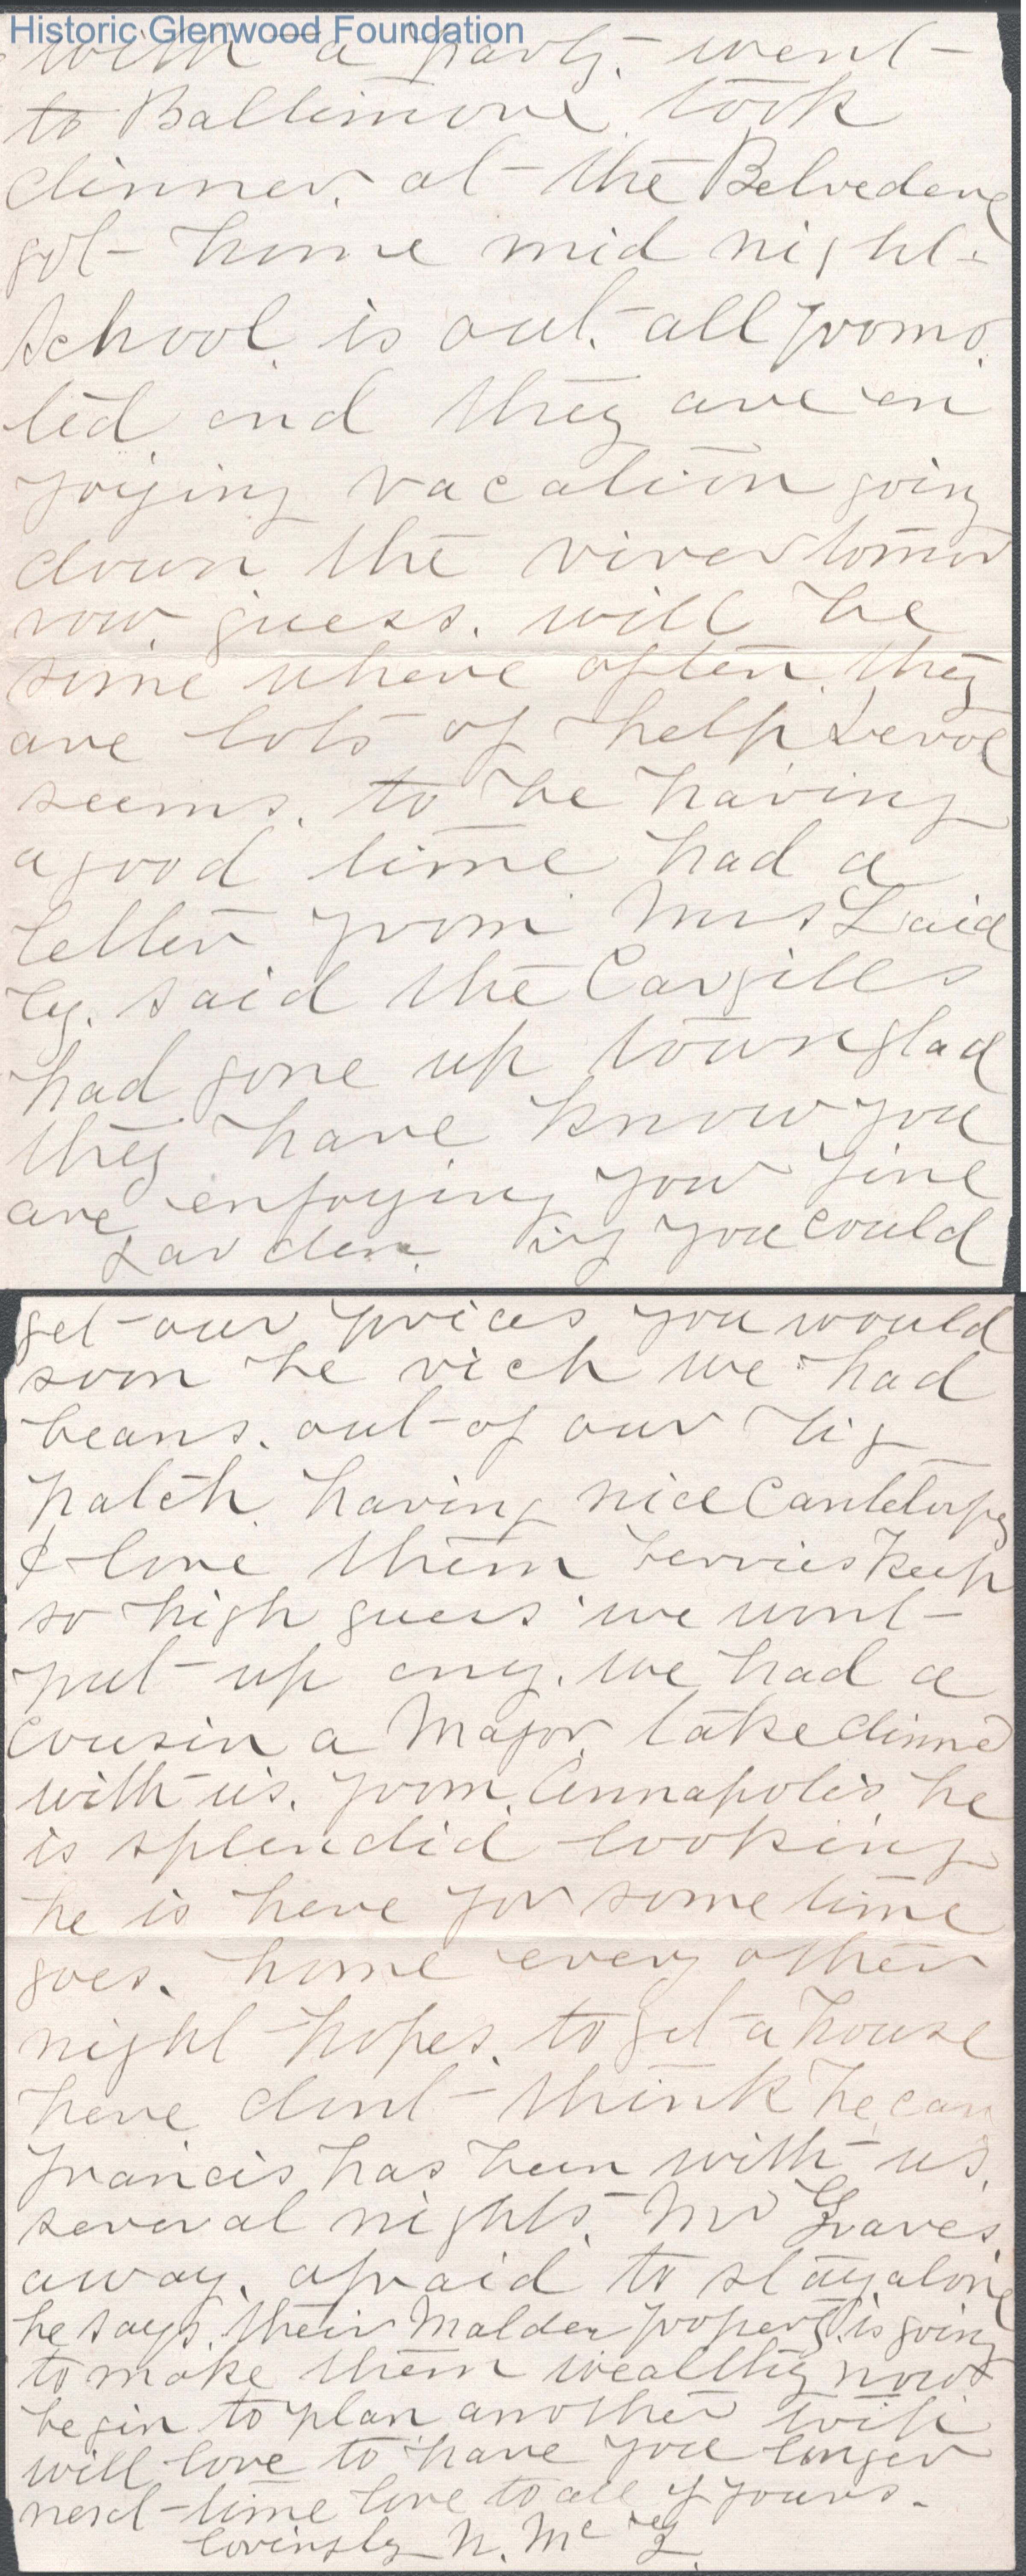 Historic Glenwood Foundation
with a party. went
to Baltimore took
dinner. at the Belvedere
got home mid night.
School. is out. all promo.
ted and they are en
joying vacation going
down the river tomor
row. guess. will be
some where often. they
are lots of help
seems. to be having
a good time had a
letter from Mrs Laid
ly. said the Cargills
had gone up town glad
they have know you
are enjoying your fine
Garden. if you could
get our prices you would
soon be rich we had
beans. out of our big
patch having nice Cantelopes
I love them berries keep
so high guess we wont
put up any. we had a
cousin a Major. take dinner
with us. from. Annapolis. he
is splendid looking
he is here for some time
goes. home every other
night hopes. to get a house
here dont think he can
Francis has been with us.
several nights. Mr Graves.
away. afraid to stay alone
he says. their Malden property. is going
to make them wealthy now
begin to plan another trip
will love to have you longer
next time love to all of yours.
lovingly N. Mc G.